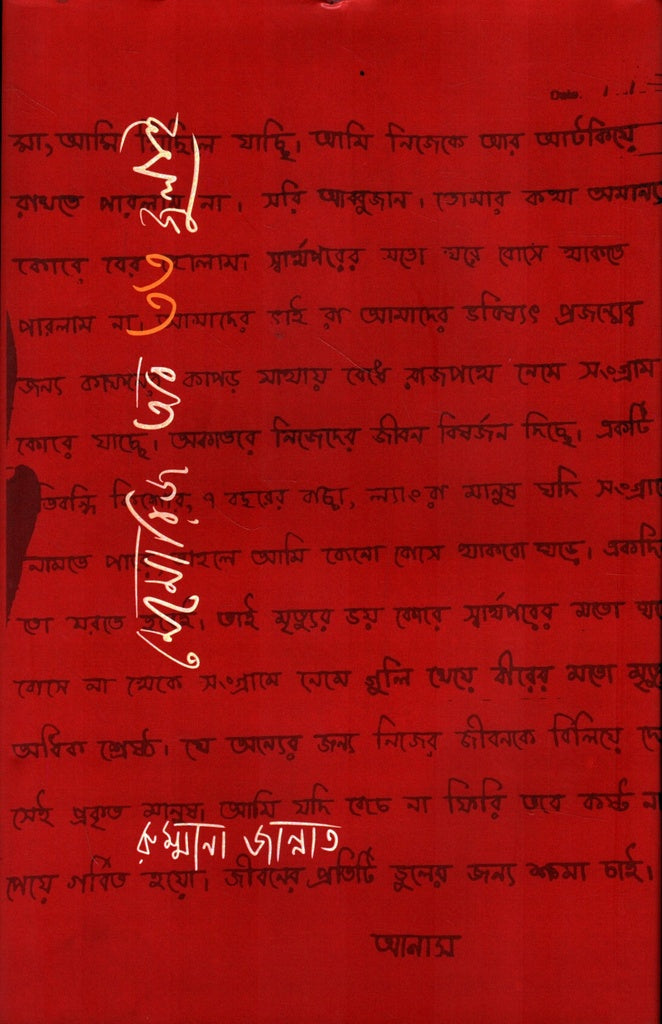 Date:
মা, আমি মিছিলে যাচ্ছি। আমি নিজেকে আর আটকিয়ে
রাখতে পারলাম না। সরি আব্বুজান। তোমার কথা অমান্য
কোরে বের হোলাম। স্বার্থপরের মতো ঘরে বোসে থাকতে
পারলাম না। আমাদের ভাই রা আমাদের ভবিষ্যৎ প্রজন্মের
জন্য কাফনের কাপড় মাথায় বেধে রাজপথে নেমে সংগ্রাম
কোরে যাচ্ছে। অকাতরে নিজেদের জীবন বিষর্জন দিচ্ছে। একটি
তিবন্ধি কিশোর, ৭ বছরের বাচ্চা, ল্যাংরা মানুষ যদি সংগ্রামে
নামতে পারে, তাহলে আমি কেনো বোসে থাকবো ঘড়ে। একদিন
তো মরতে হবেই। তাই মৃত্যুর ভয় কোরে স্বার্থপরের মতো ঘরে
বোসে না থেকে সংগ্রামে নেমে গুলি খেয়ে বীরের মতো মৃত্যু
অধিক শ্রেষ্ঠ। যে অন্যের জন্য নিজের জীবনকে বিলিয়ে দেয়
সেই প্রকৃত মানুষ। আমি যদি বেচে না ফিরি তবে কষ্ট না
পেয়ে গর্বিত হয়ো। জীবনের প্রতিটি ভুলের জন্য ক্ষমা চাই।
আনাস
মেমোরিজ অব ৩৩ জুলাই
রুম্মানা জান্নাত